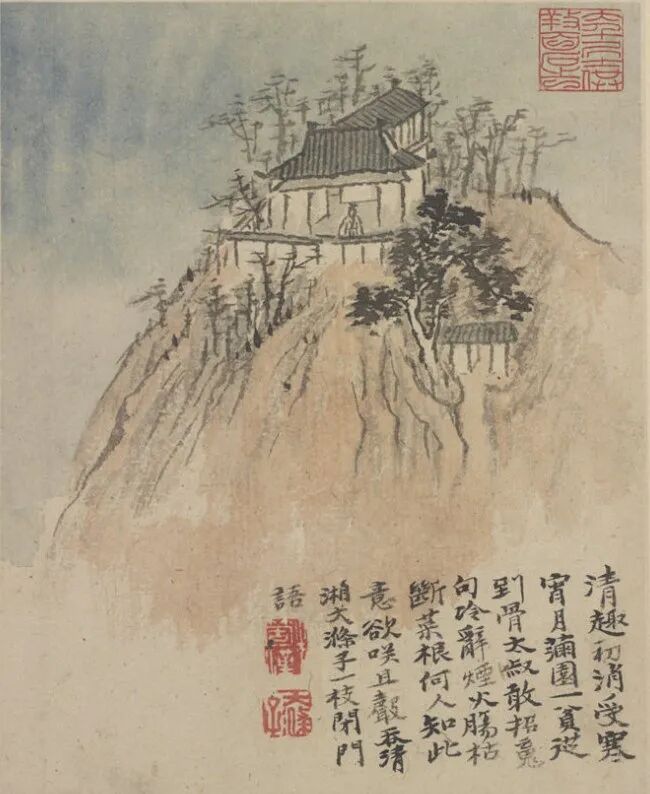 清趣初消受寒
宵月滿園一貧從
到骨太寂敢招魂
句冷辭煙火腸枯
斷菜根何人知此
意欲咲且聲吞清
湘大滌子一枝閉門
語